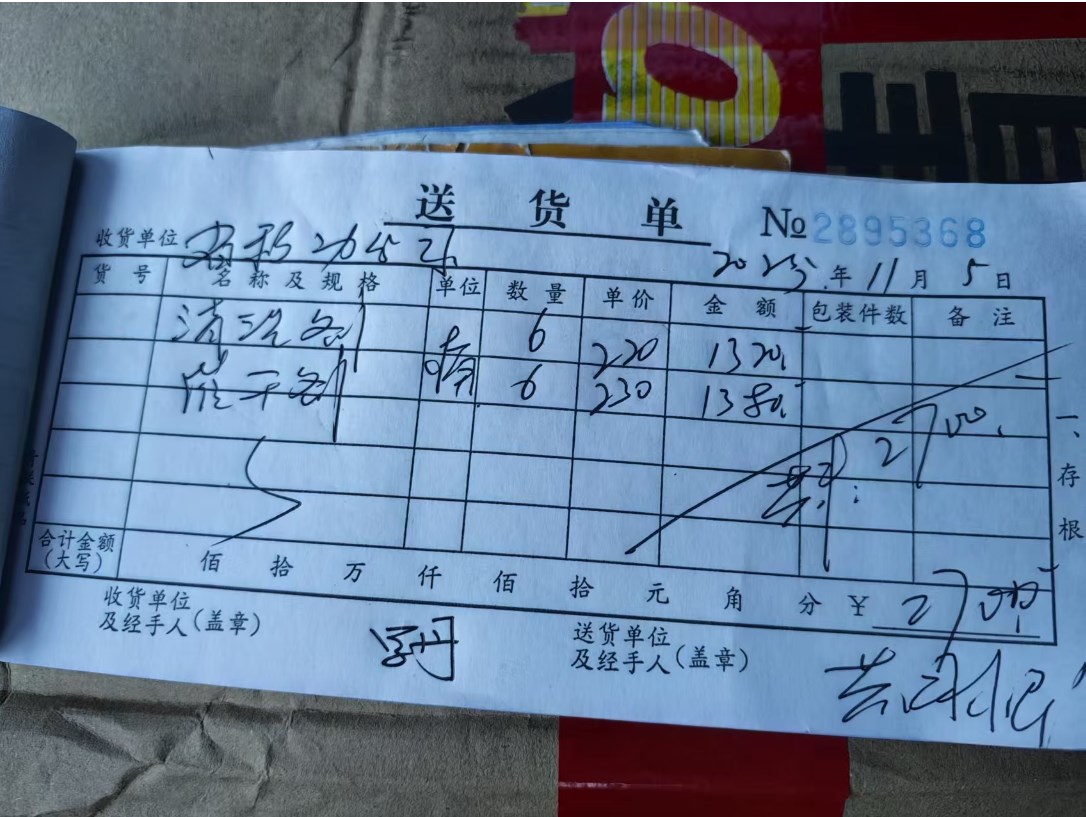 送 货 单 №2895368
收货单位 年 11 月 5 日
货 号 名 称 及 规 格 单位 数 量 单 价 金 额 包装件数 备 注
清洗剂 6 220 1320
催干剂 桶 6 230 1380
2700
合计金额(大写) 佰 拾 万 仟 佰 拾 元 角 分 ¥ 2700
收货单位及经手人(盖章)
送货单位及经手人(盖章)
一、存根